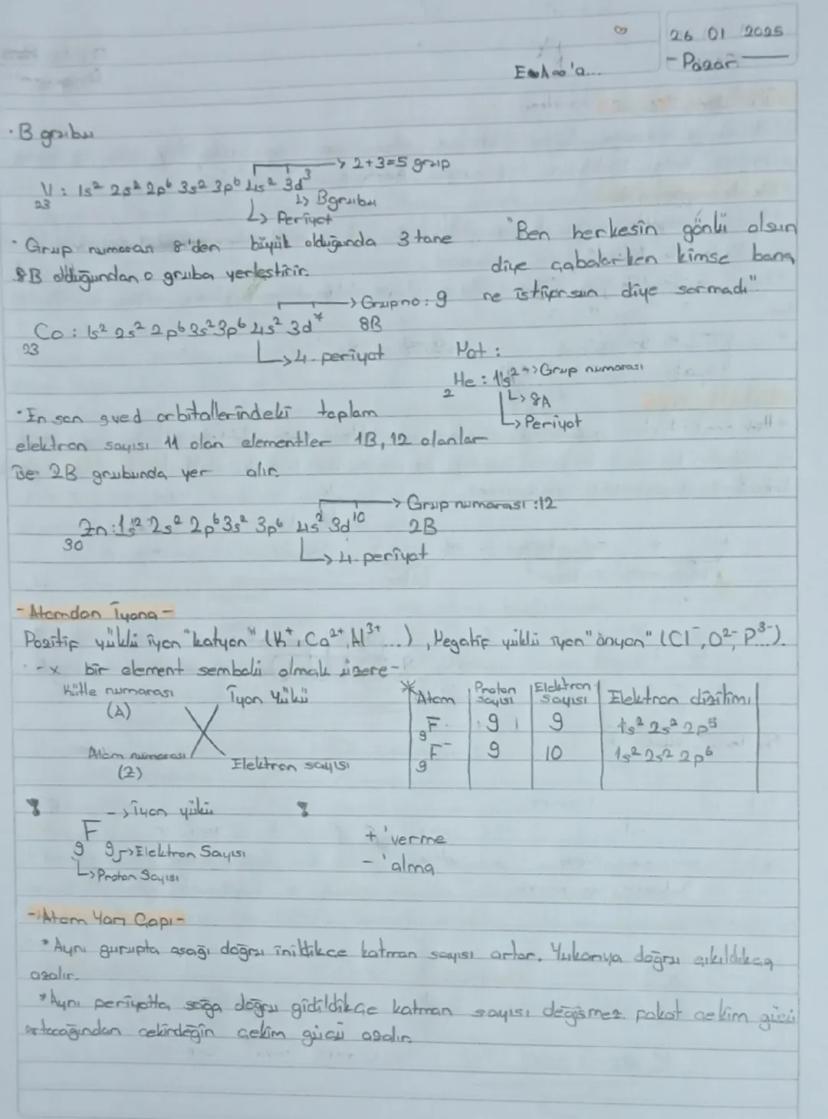 26 01 2025
- Pazar
· B grubu
→ 2+3=5 grup
23V : 1s² 2s² 2p⁶ 3s² 3p⁶ 4s² 3d³
↳ B grubu
↳ Periyot
· Grup numarası 8'den büyük olduğunda 3 tane
8B olduğundan o gruba yerleştirir.
"Ben herkesin gönlü olsun
diye çabalarken kimse bana
ne istiyorsun diye sormadı"
→ Grup no : 9
23Co : 1s² 2s² 2p⁶ 3s² 3p⁶ 4s² 3d⁷ 8B
↳ 4. periyot
Not :
2He : 1s² → Grup numarası
↳ 8A
↳ Periyot
· En son orbitallerindeki toplam
elektron sayısı 11 olan elementler 1B, 12 olanlar
ise 2B grubunda yer alır.
→ Grup numarası : 12
30Zn : 1s² 2s² 2p⁶ 3s² 3p⁶ 4s² 3d¹⁰ 2B
↳ 4. periyot
- Atomdan İyona -
Pozitif yüklü iyon "katyon" (K⁺, Ca²⁺, Al³⁺ ...) , Negatif yüklü iyon "anyon" (Cl⁻, O²⁻, P³⁻...).
- x bir element sembolü olmak üzere -
Kütle numarası İyon Yükü
(A)
X
Atom numarası Elektron sayısı
(Z)
* Atom | Proton sayısı | Elektron sayısı | Elektron dizilimi
9F | 9 | 9 | 1s² 2s² 2p⁵
9F⁻ | 9 | 10 | 1s² 2s² 2p⁶
- → İyon yükü
F
9 9 → Elektron Sayısı
↳ Proton Sayısı
+ 'verme
- 'alma
- Atom Yarı Çapı -
* Aynı gurupta aşağı doğru inildikce katman sayısı artar. Yukarıya doğru çıkıldıkça
azalır.
* Aynı periyotta sağa doğru gidildikçe katman sayısı değişmez fakat çekim gücü
artacağından çekirdeğin çekim gücü azalır.